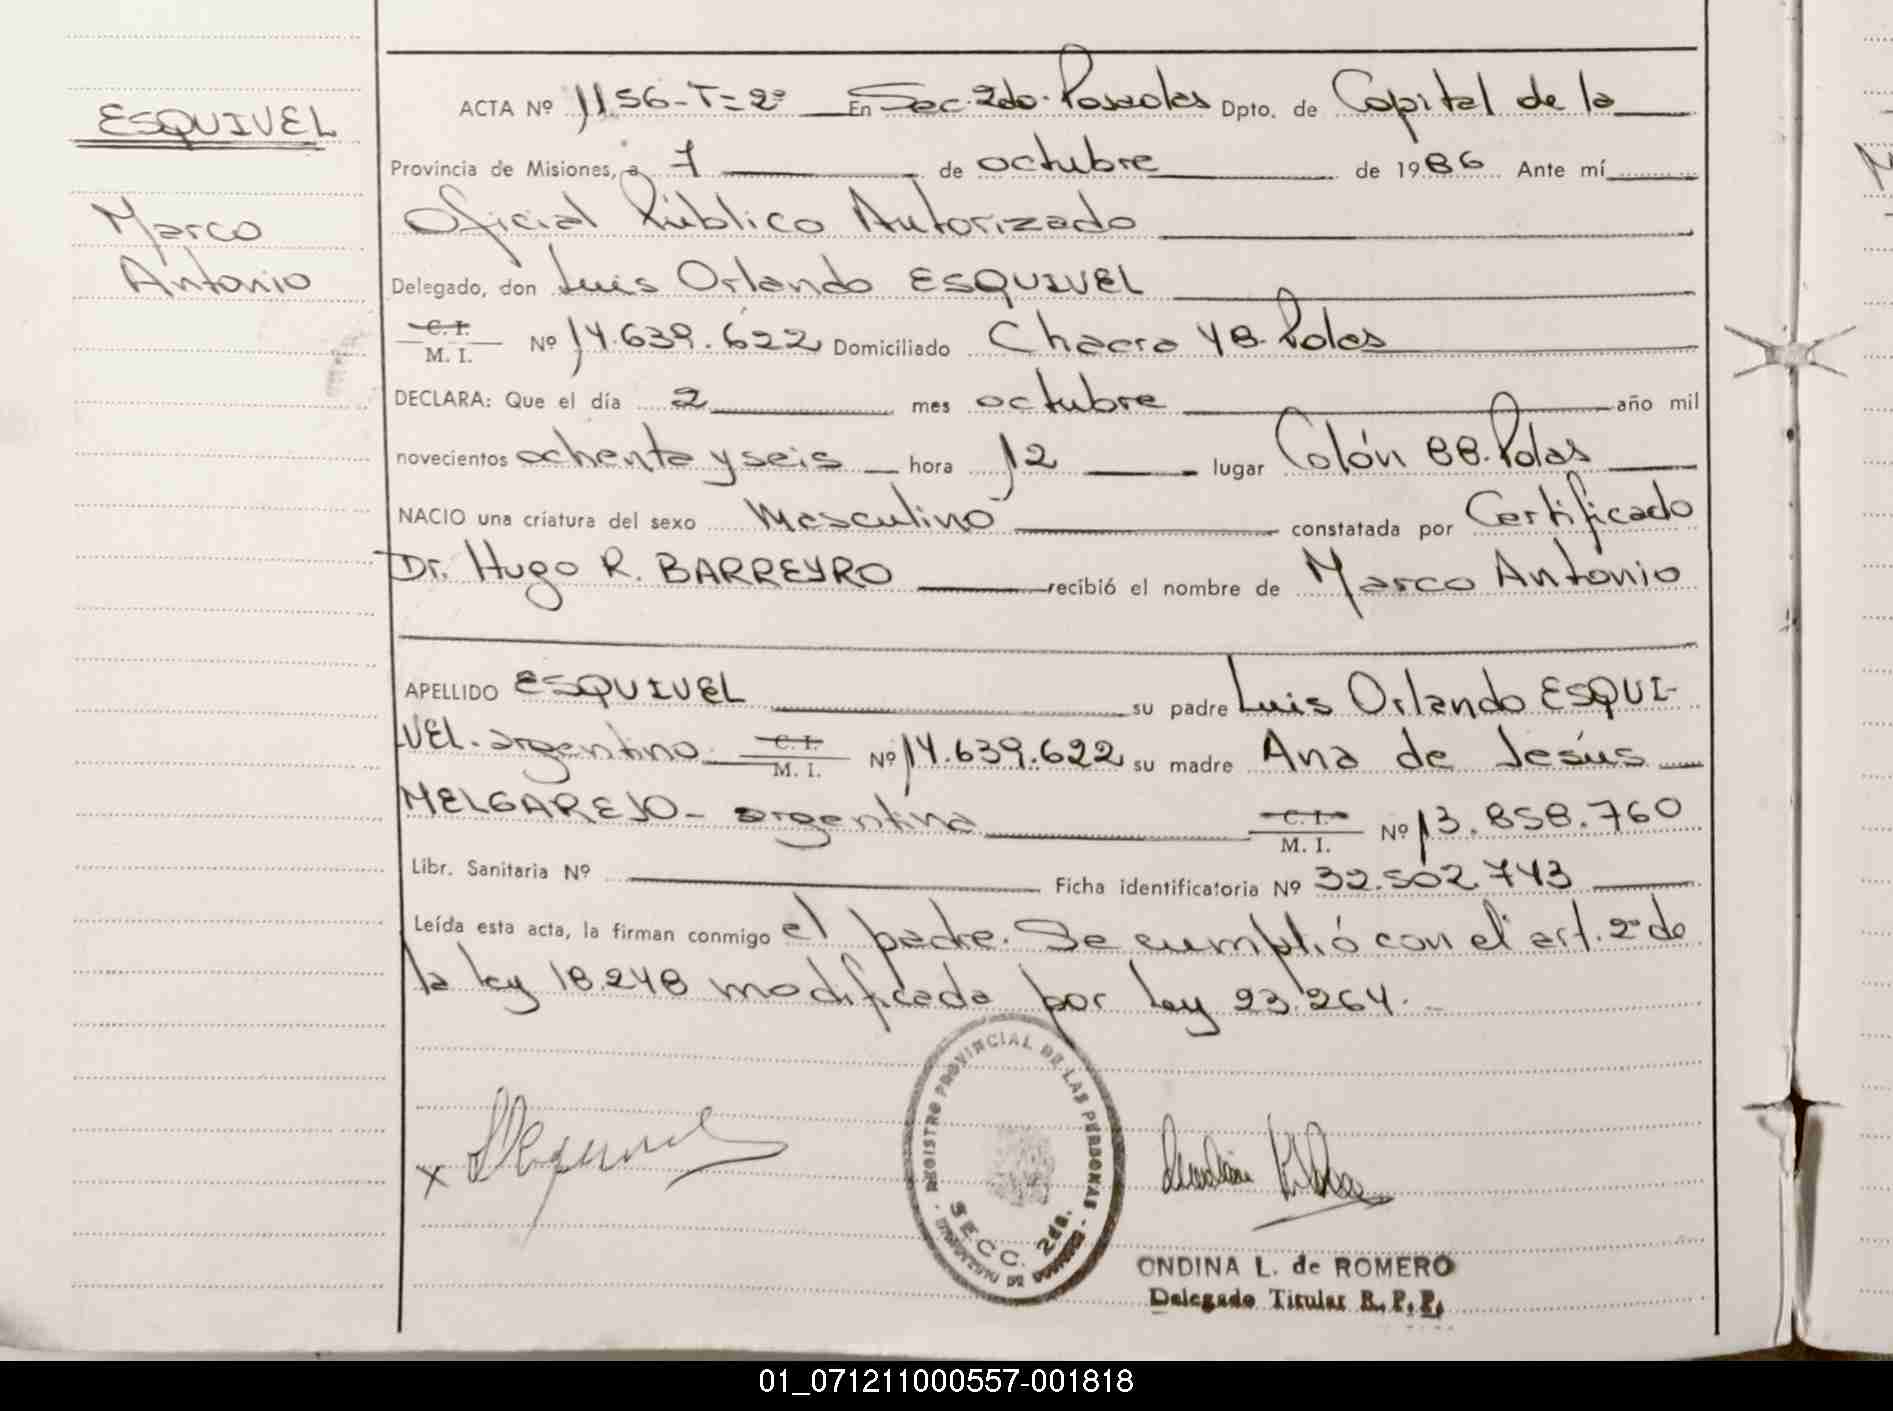 ESQUIVEL
Marco
Antonio
ACTA Nº 1156-T=2º En Sec. 2do. Posadas Dpto. de Capital de la
Provincia de Misiones, a 7 de octubre de 1986 Ante mí
Oficial Público Autorizado
Delegado, don Luis Orlando ESQUIVEL
C. I.
M. I. Nº 14.639.622 Domiciliado Chacra 48. Pdas
DECLARA: Que el día 2 mes octubre año mil
novecientos ochenta y seis hora 12 lugar Colón 88. Pdas
NACIO una criatura del sexo Masculino constatada por Certificado
Dr. Hugo R. BARREYRO recibió el nombre de Marco Antonio
APELLIDO ESQUIVEL su padre Luis Orlando ESQUI-
VEL. argentino C. I. M. I. Nº 14.639.622 su madre Ana de Jesús
MELGAREJO - argentina C. I. M. I. Nº 13.858.760
Libr. Sanitaria Nº Ficha identificatoria Nº 32.502.743
Leída esta acta, la firman conmigo el padre. Se cumplió con el art. 2º de
la ley 18.248 modificada por ley 23.264.-
x
REGISTRO PROVINCIAL DE LAS PERSONAS
SECC. 2da.
ONDINA L. de ROMERO
Delegado Titular R. P. P.
01_071211000557-001818